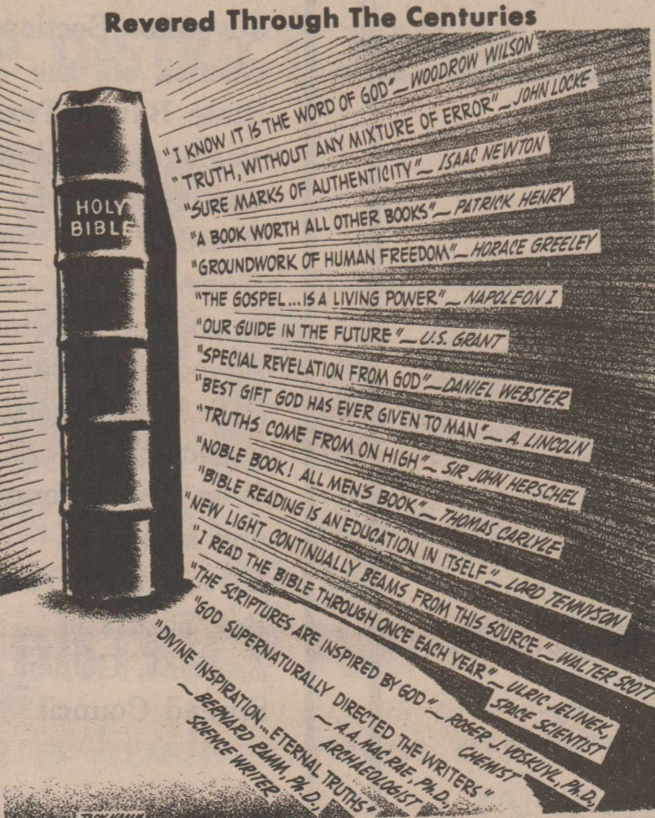 Revered Through The Centuries
HOLY
BIBLE
"I KNOW IT IS THE WORD OF GOD"—WOODROW WILSON
"TRUTH, WITHOUT ANY MIXTURE OF ERROR"—JOHN LOCKE
"SURE MARKS OF AUTHENTICITY"—ISAAC NEWTON
"A BOOK WORTH ALL OTHER BOOKS"—PATRICK HENRY
"GROUNDWORK OF HUMAN FREEDOM"—HORACE GREELEY
"THE GOSPEL...IS A LIVING POWER"—NAPOLEON I
"OUR GUIDE IN THE FUTURE"—U.S. GRANT
"SPECIAL REVELATION FROM GOD"—DANIEL WEBSTER
"BEST GIFT GOD HAS EVER GIVEN TO MAN"—A. LINCOLN
"TRUTHS COME FROM ON HIGH"—SIR JOHN HERSCHEL
"NOBLE BOOK! ALL MEN'S BOOK"—THOMAS CARLYLE
"BIBLE READING IS AN EDUCATION IN ITSELF"—LORD TENNYSON
"NEW LIGHT CONTINUALLY BEAMS FROM THIS SOURCE"—WALTER SCOTT
"I READ THE BIBLE THROUGH ONCE EACH YEAR"—ULRIC JELINEK,
SPACE SCIENTIST
"THE SCRIPTURES ARE INSPIRED BY GOD"—ROGER J. VOSKUYL, Ph.D.,
CHEMIST
"GOD SUPERNATURALLY DIRECTED THE WRITERS"
—A.A. MAC RAE, Ph.D.,
ARCHAEOLOGIST
"DIVINE INSPIRATION...ETERNAL TRUTHS"
—BERNARD RAMM, Ph.D.,
SCIENCE WRITER